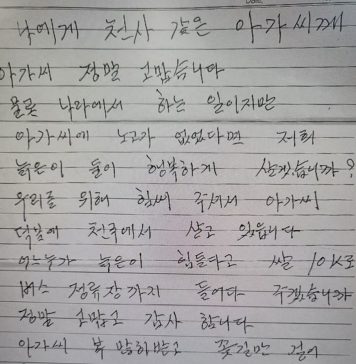 나에게 천사 같은 아가씨께
아가씨 정말 고맙습니다
물론 나라에서 하는 일이지만
아가씨에 노고가 없었다면 저희
늙은이 들이 행복하게 살겠습니까?
우리를 위해 힘써 주셔서 아가씨
덕분에 천국에서 살고 있읍니다
어느누가 늙은이 힘들다고 쌀 10K로
버스 정류장까지 들어다 주겠습니까
정말 고맙고 감사 합니다
아가씨 복 많이받고 꽃길만 걸어